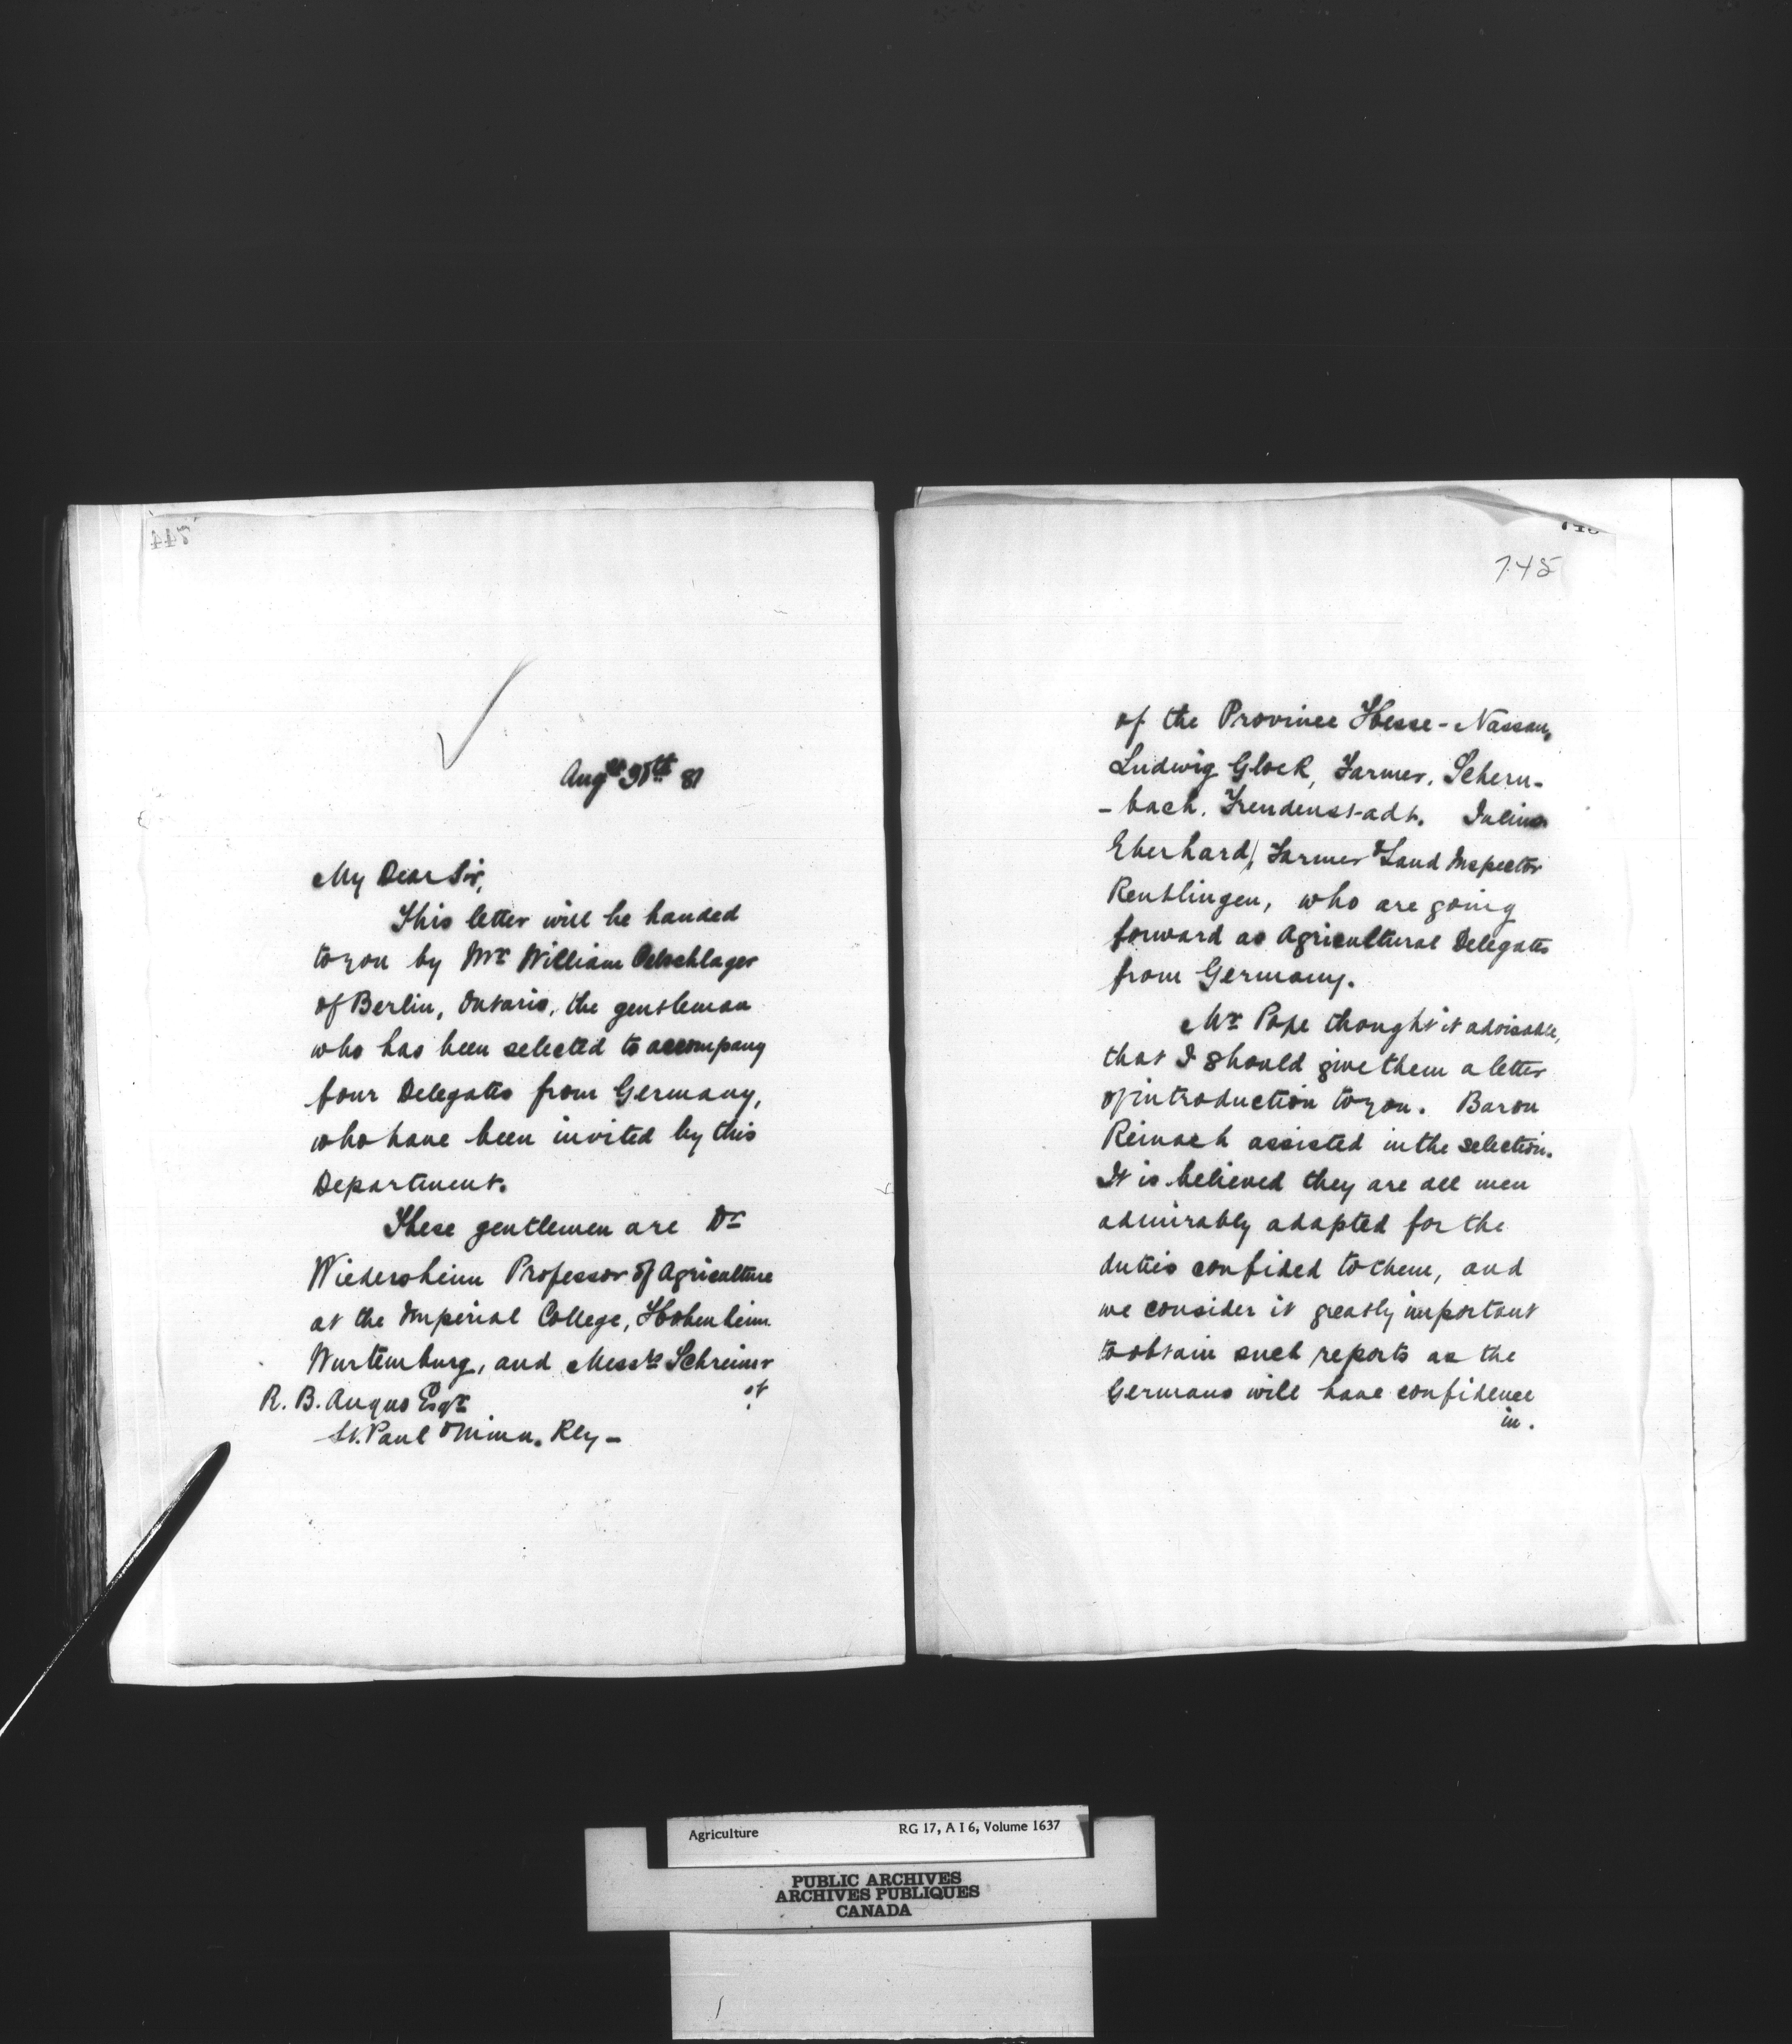 744
Augst 30th 81
My Dear Sir,
This letter will be handed
to you by Mr William Oelschlager
of Berlin, Ontario, the gentleman
who has been selected to accompany
four Delegates from Germany,
who have been invited by this
Department.
These gentlemen are Dr
Wiedersheim Professor of Agriculture
at the Imperial College, Hohenheim.
Wurtemburg, and Messrs Schreiner
of
R. B. Angus Esqr
St. Paul & Minn. Rly -
745
of the Province Hesse-Nassau,
Ludwig Glock, Farmer, Schern-
-bach. Freudenstadt. Julius
Eberhard, Farmer & Land Inspector
Reutlingen, who are going
forward as Agricultural Delegates
from Germany.
Mr Pope thought it advisable,
that I should give them a letter
of introduction to you. Baron
Reinach assisted in the selection.
It is believed they are all men
admirably adapted for the
duties confided to them, and
we consider it greatly important
to obtain such reports as the
Germans will have confidence
in.
Agriculture RG 17, A I 6, Volume 1637
PUBLIC ARCHIVES
ARCHIVES PUBLIQUES
CANADA